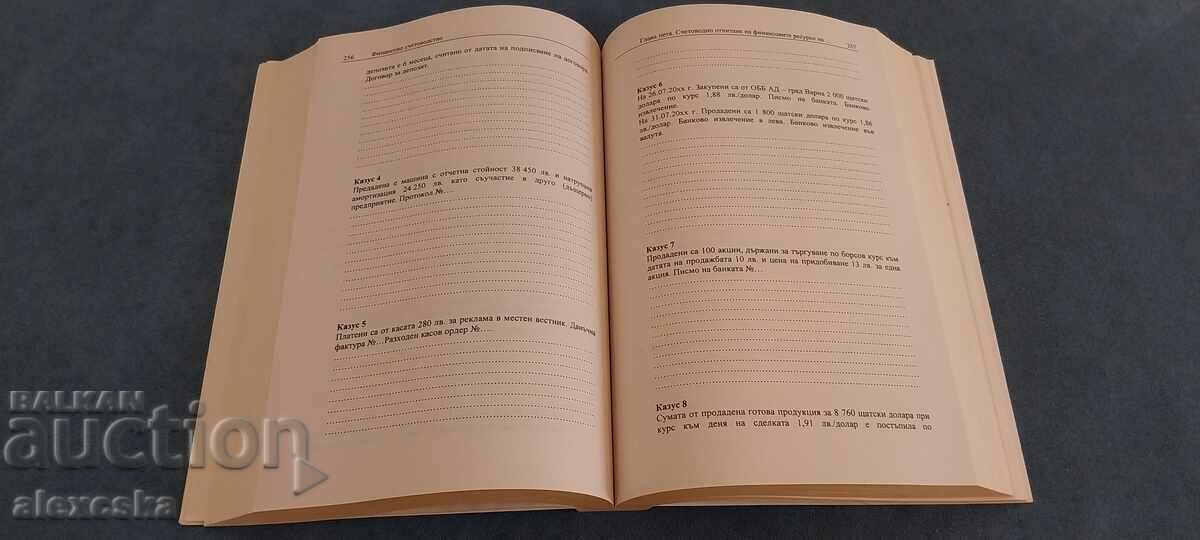 256 Финансово счетоводство
депозита е 6 месеца, считано от датата на подписване на договора.
Договор за депозит.
Казус 4
Продадена е машина с отчетна стойност 38 450 лв. и натрупана
амортизация 24 250 лв. като съучастие в друго (дъщерно)
предприятие. Протокол №…
Казус 5
Платени са от касата 280 лв. за реклама в местен вестник. Данъчна
фактура №…Разходен касов ордер №….
Глава пета. Счетоводно отчитане на финансовите ресурси на 257
Казус 6
На 26.07.20xx г. Закупени са от ОББ АД – град Варна 2 000 щатски
долара по курс 1,88 лв./долар. Писмо на банката. Банково
извлечение.
На 31.07.20xx г. Продадени са 1 800 щатски долара по курс 1,86
лв./долар. Банково извлечение в лева. Банково извлечение във
валута.
Казус 7
Продадени са 100 акции, държани за търгуване по борсов курс към
датата на продажбата 10 лв. и цена на придобиване 13 лв. за една
акция. Писмо на банката №…
Казус 8
Сумата от продадена готова продукция за 8 760 щатски долара при
курс към деня на сделката 1,91 лв./долар е постъпила по
BALKAN
auction
alexcska